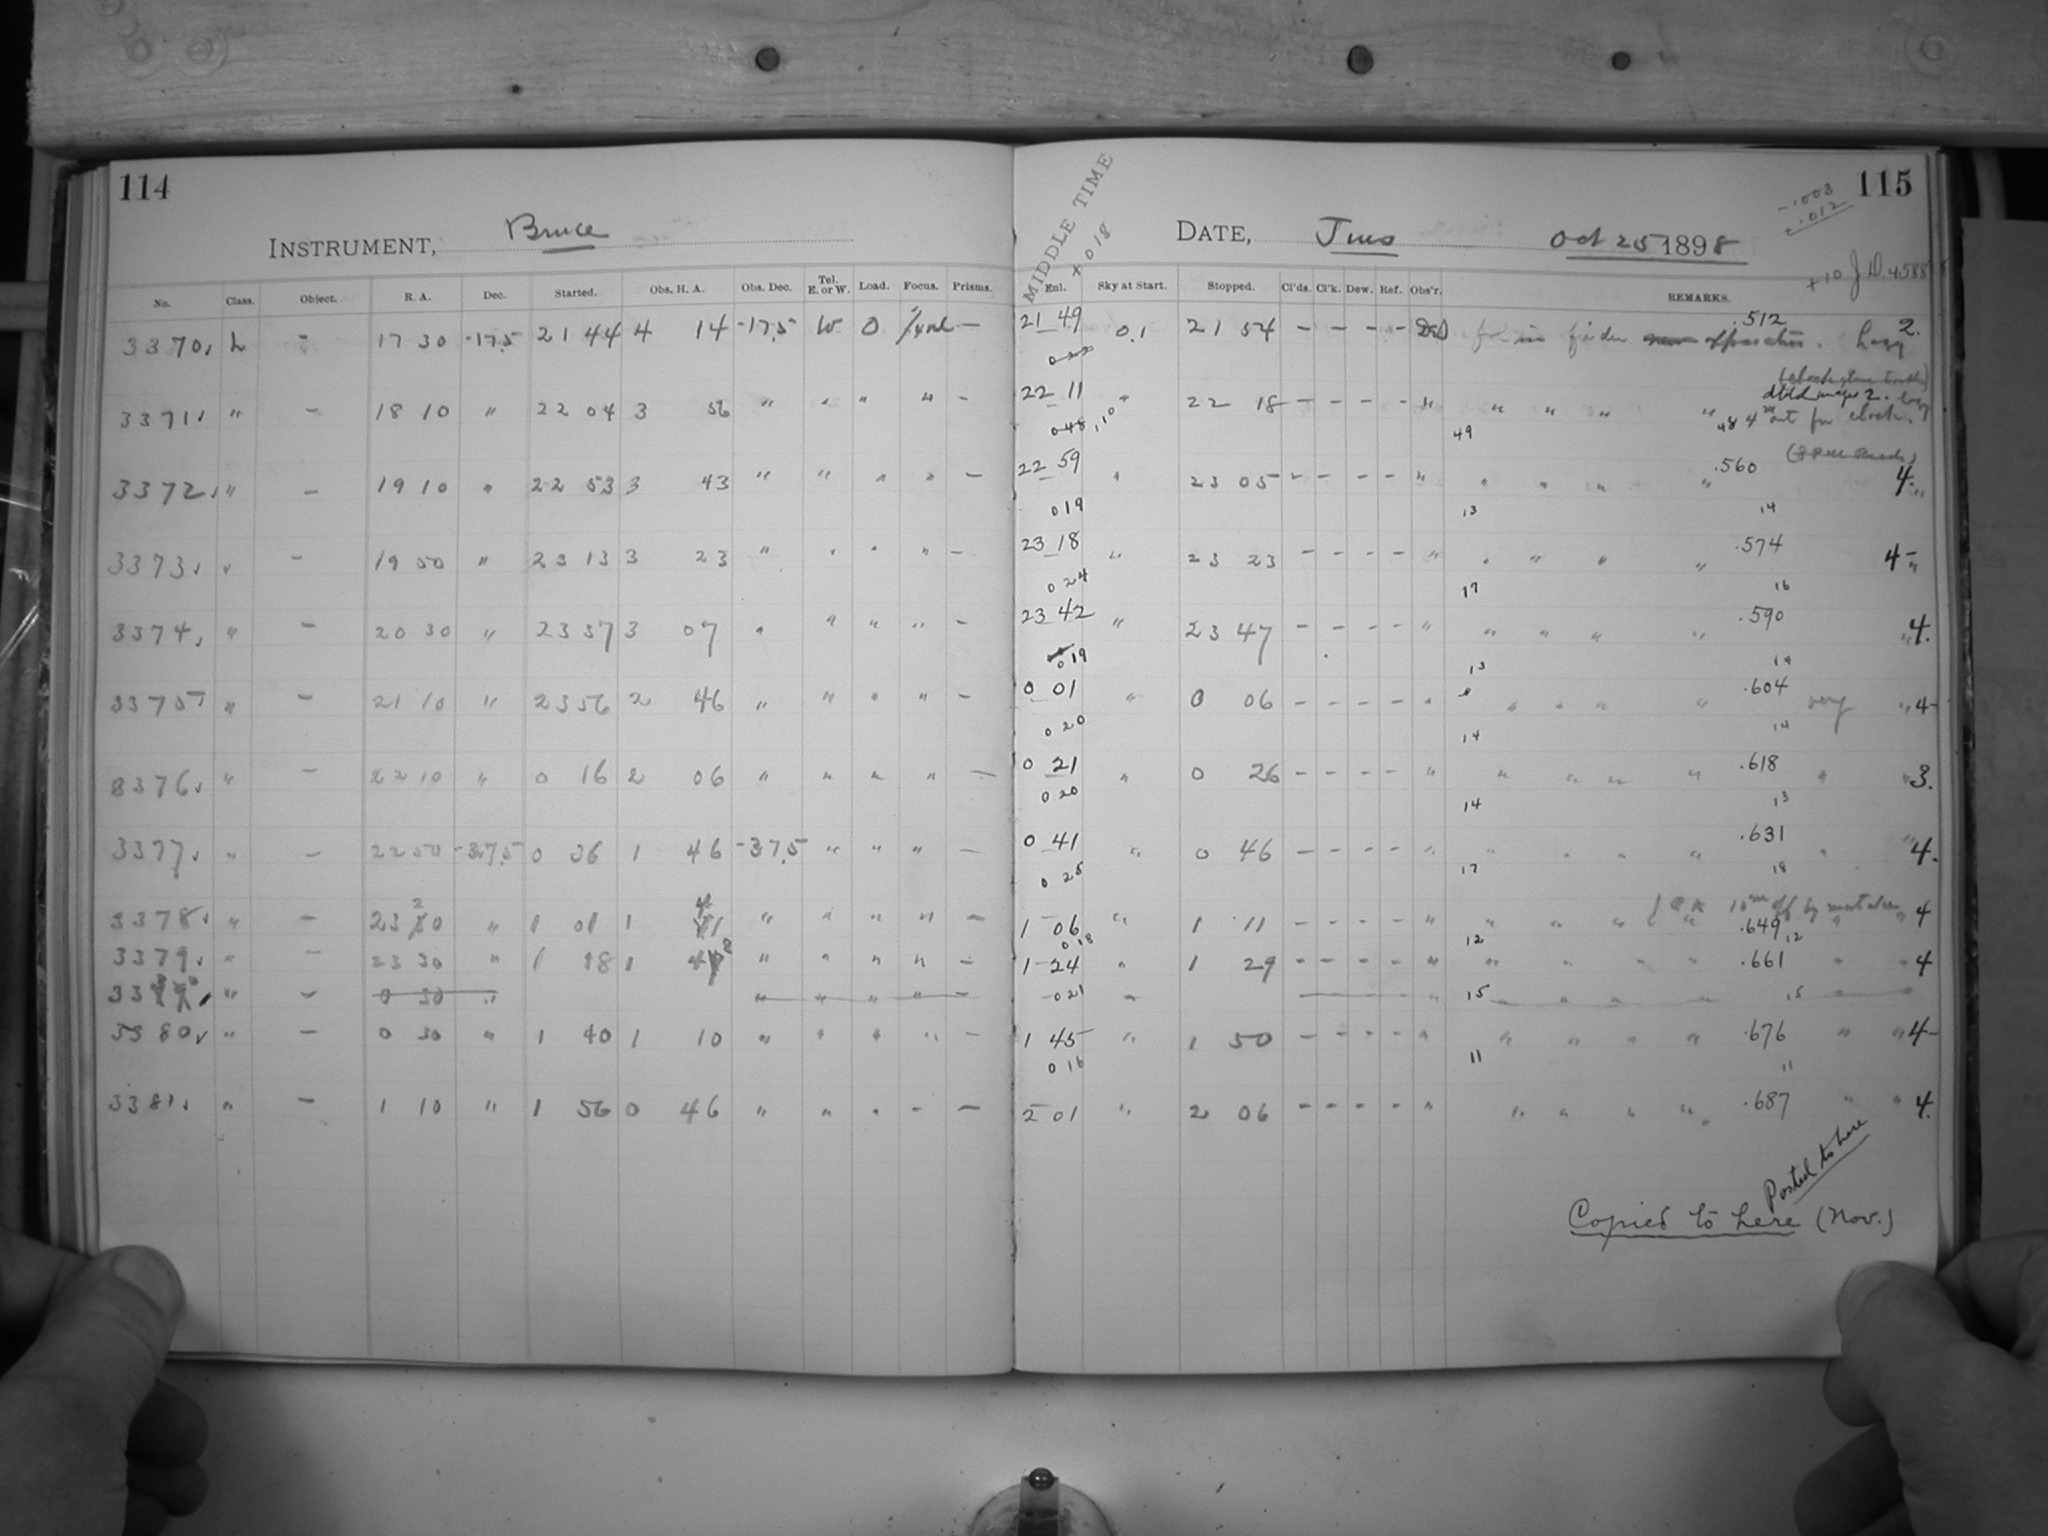 114
INSTRUMENT, Bruce
No. Class. Object. R. A. Dec. Started. Obs. H. A. Obs. Dec. Tel. E. or W. Load. Focus. Prisms.
3370 L - 17 30 -17.5 21 44 4 14 -17.5 W 0 —
3371 " - 18 10 " 22 04 3 56 " " " " -
3372 " - 19 10 " 22 53 3 43 " " " " -
3373 " - 19 50 " 23 13 3 23 " " " " -
3374 " - 20 30 " 23 37 3 07 " " " " -
3375 " - 21 10 " 23 56 2 46 " " " " -
3376 " - 22 10 " 0 16 2 06 " " " " -
3377 " - 22 50 -37.5 0 36 1 46 -37.5 " " " -
3378 " - 23 20 " 1 01 1 41 " " " " -
3379 " - 23 30 " 1 18 1 48 " " " " -
" - 0 30 " " " " " -
3380 " - 0 30 " 1 40 1 10 " " " " -
3381 " - 1 10 " 1 56 0 46 " " " - -
115
-.003
.012
MIDDLE TIME
+ 018
DATE, Tues Oct 25 1898
+10 J.D. 4588
Enl. Sky at Start. Stopped. Cl'ds. Cl'k. Dew. Ref. Obs'r. REMARKS.
21 49 0.1 21 54 - - - - finder apparatus. .512 hazy 2.
022
dbld images 2.
22 11 " 22 18 - - - - " " " " " 4m out for clock.
048 .10 49 48
22 59 " 23 05 - - - - " " " " " .560 4. "
019 13 14
23 18 " 23 23 - - - - " " " " " .574 4- "
024 17 16
23 42 " 23 47 - - - - " " " " " .590 " 4.
019 13 14
0 01 " 0 06 - - - - " " " " " .604 very " 4-
020 14 14
0 21 " 0 26 - - - - " " " " " .618 " " 3.
020 14 13
0 41 " 0 46 - - - - " " " " " .631 " " 4.
025 17 18
10m off by mistake
1 06 " 1 11 - - - - " " " " " .649 " " 4
018 12 12
1 24 " 1 29 - - - - " " " " " .661 " " 4
021 " " 15 " " " " 15 " "
1 45 " 1 50 - - - - " " " " " .676 " " 4-
016 11 11
2 01 " 2 06 - - - - " " " " " .687 " " 4.
Posted to here
Copied to here (Nov.)